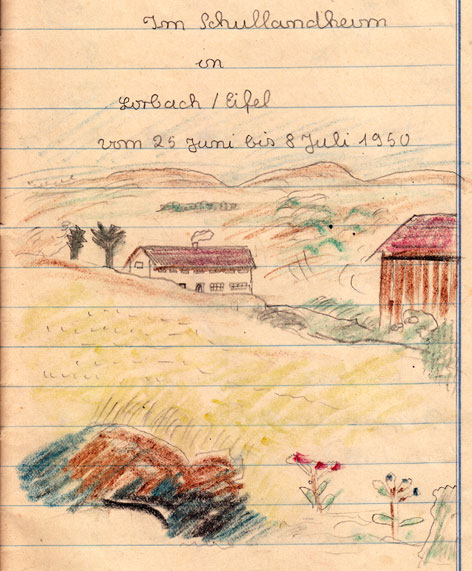 Im Schullandheim
in
Lorbach / Eifel
vom 25 Juni bis 8 Juli 1950